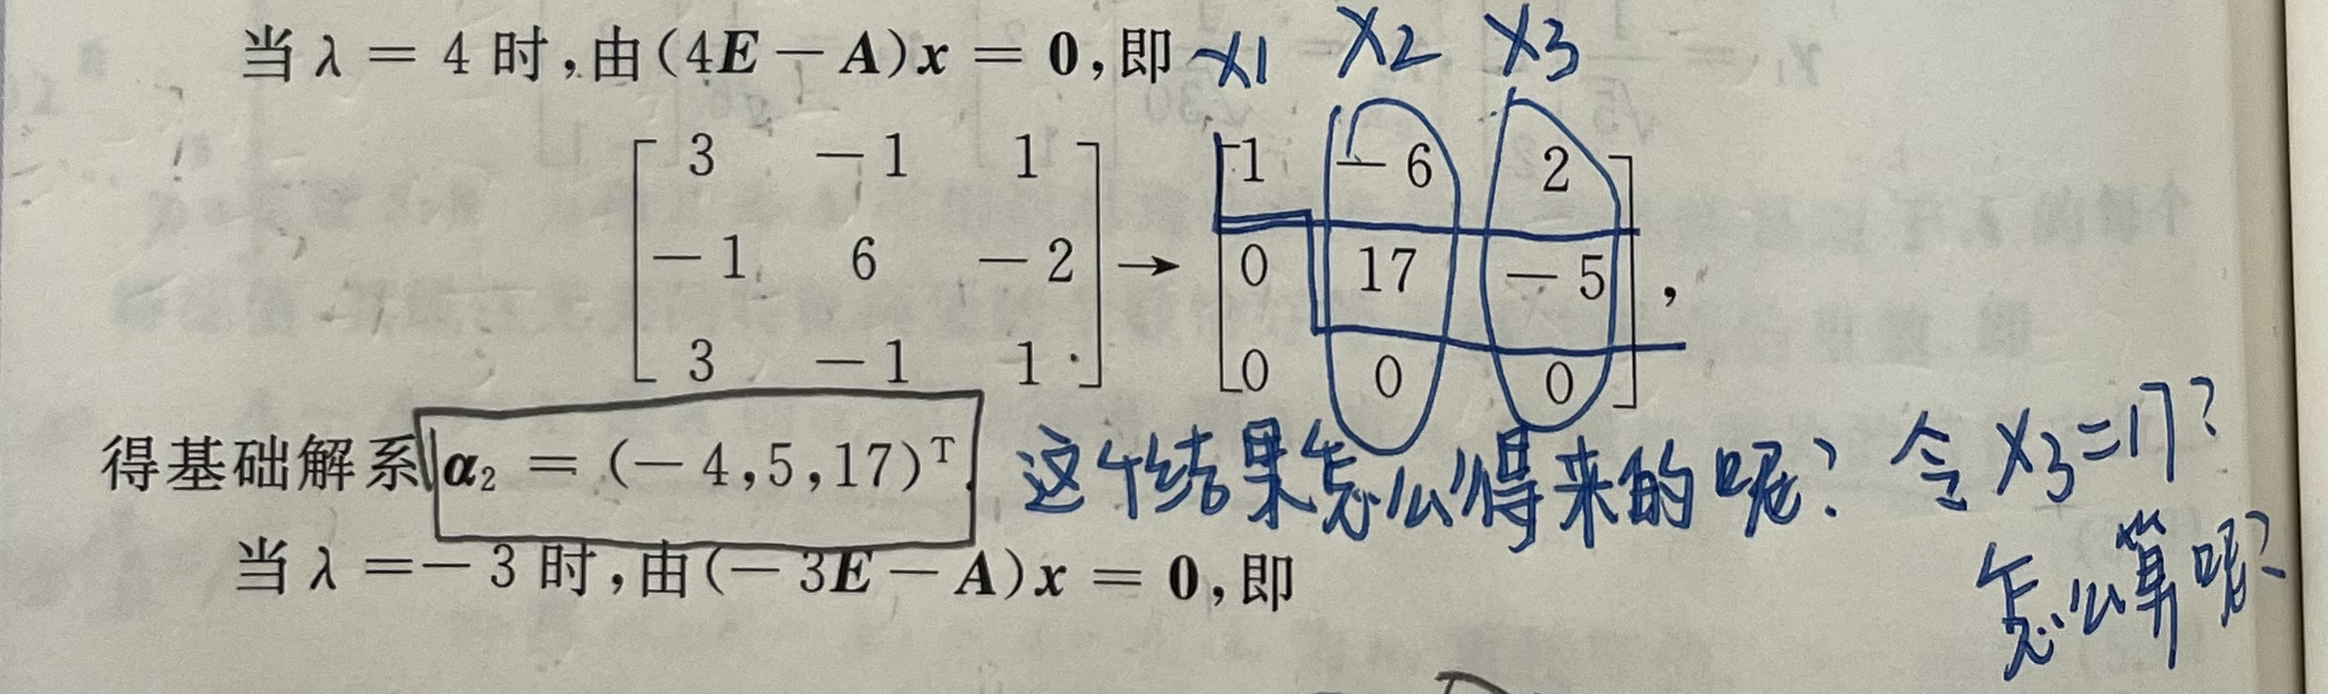 当 λ = 4 时,由(4E − A)x = 0,即 x1 x2 x3
3 −1 1 1 −6 2
−1 6 −2 → 0 17 −5 ,
3 −1 1 0 0 0
得基础解系 α₂ = (−4,5,17)ᵀ. 这个结果怎么得来的呢? 令 x3=17?
怎么算呢?
当 λ =− 3 时,由(− 3E − A)x = 0,即